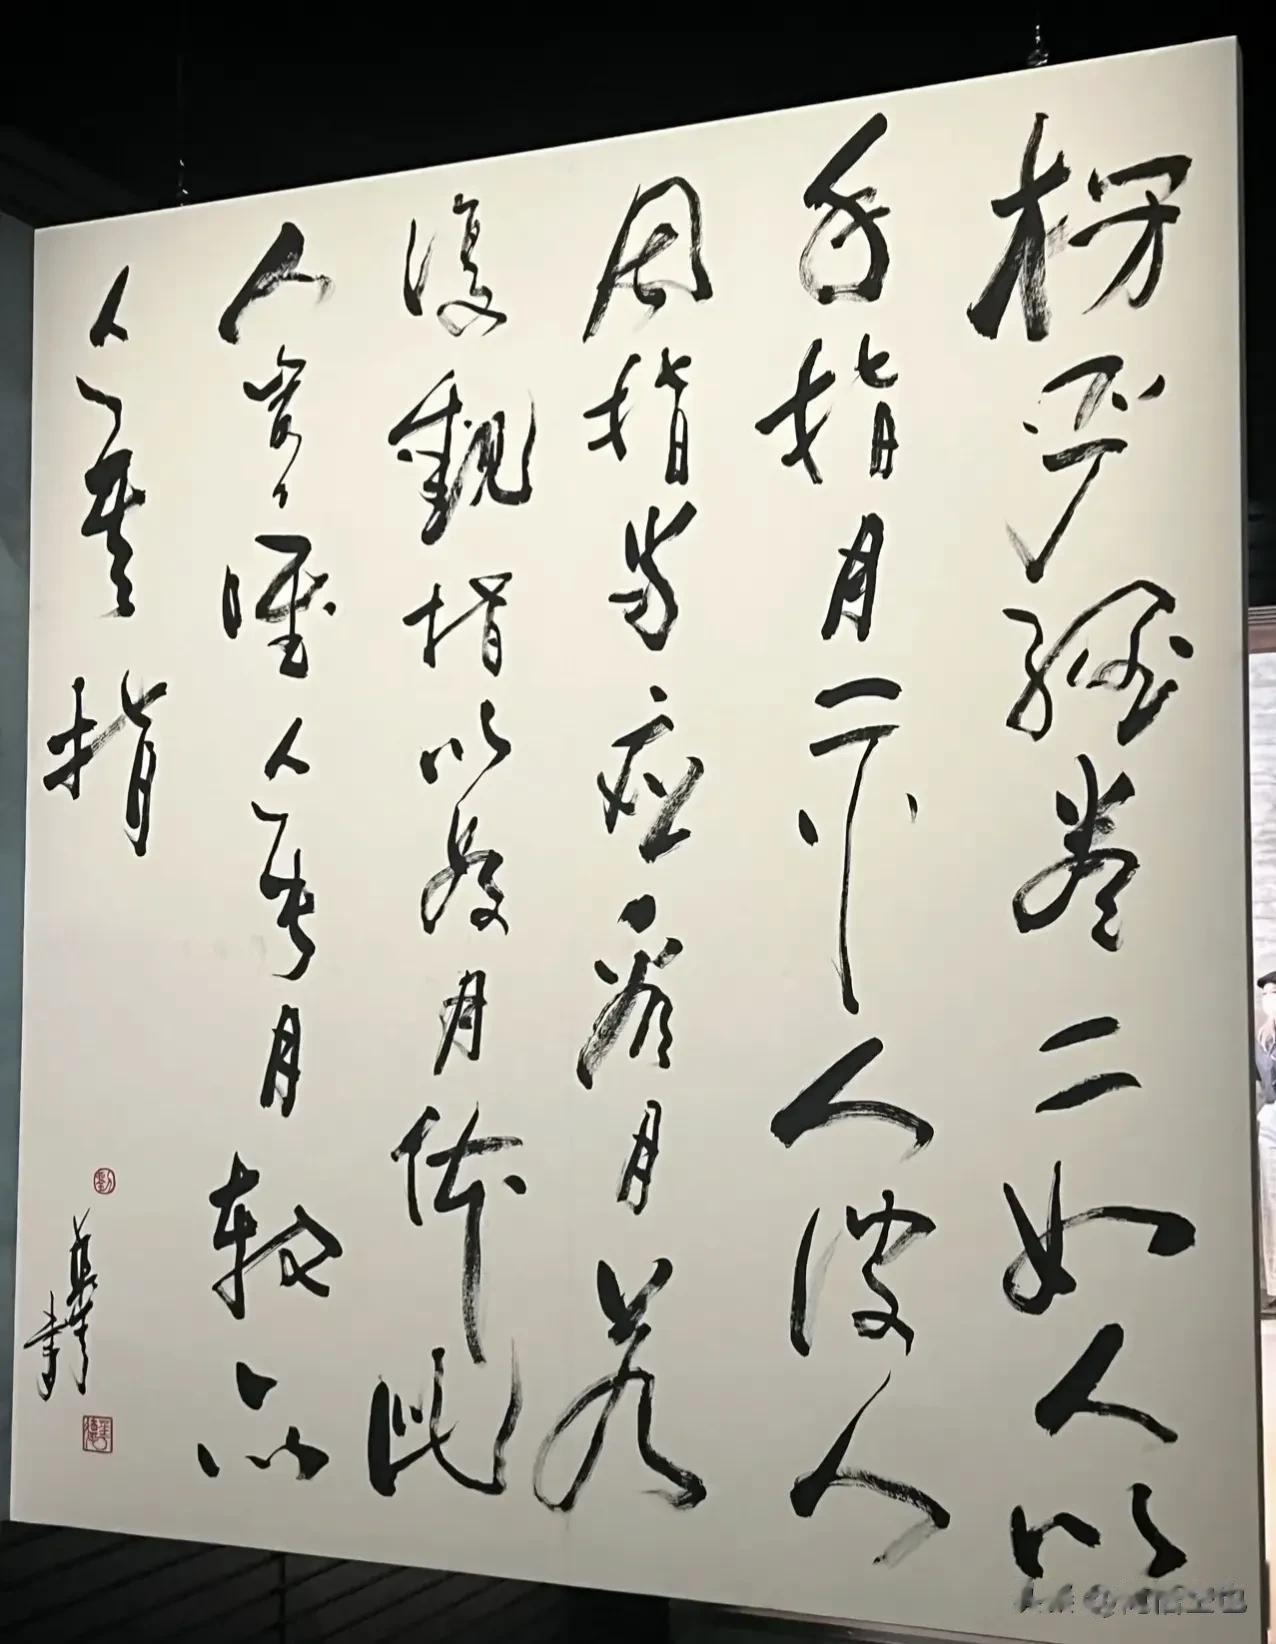 楞严經卷二如人以
手指月示人彼人
因指当应看月若
復觀指以为月体此
人岂唯亡失月轮亦
亡其指
劉
头条